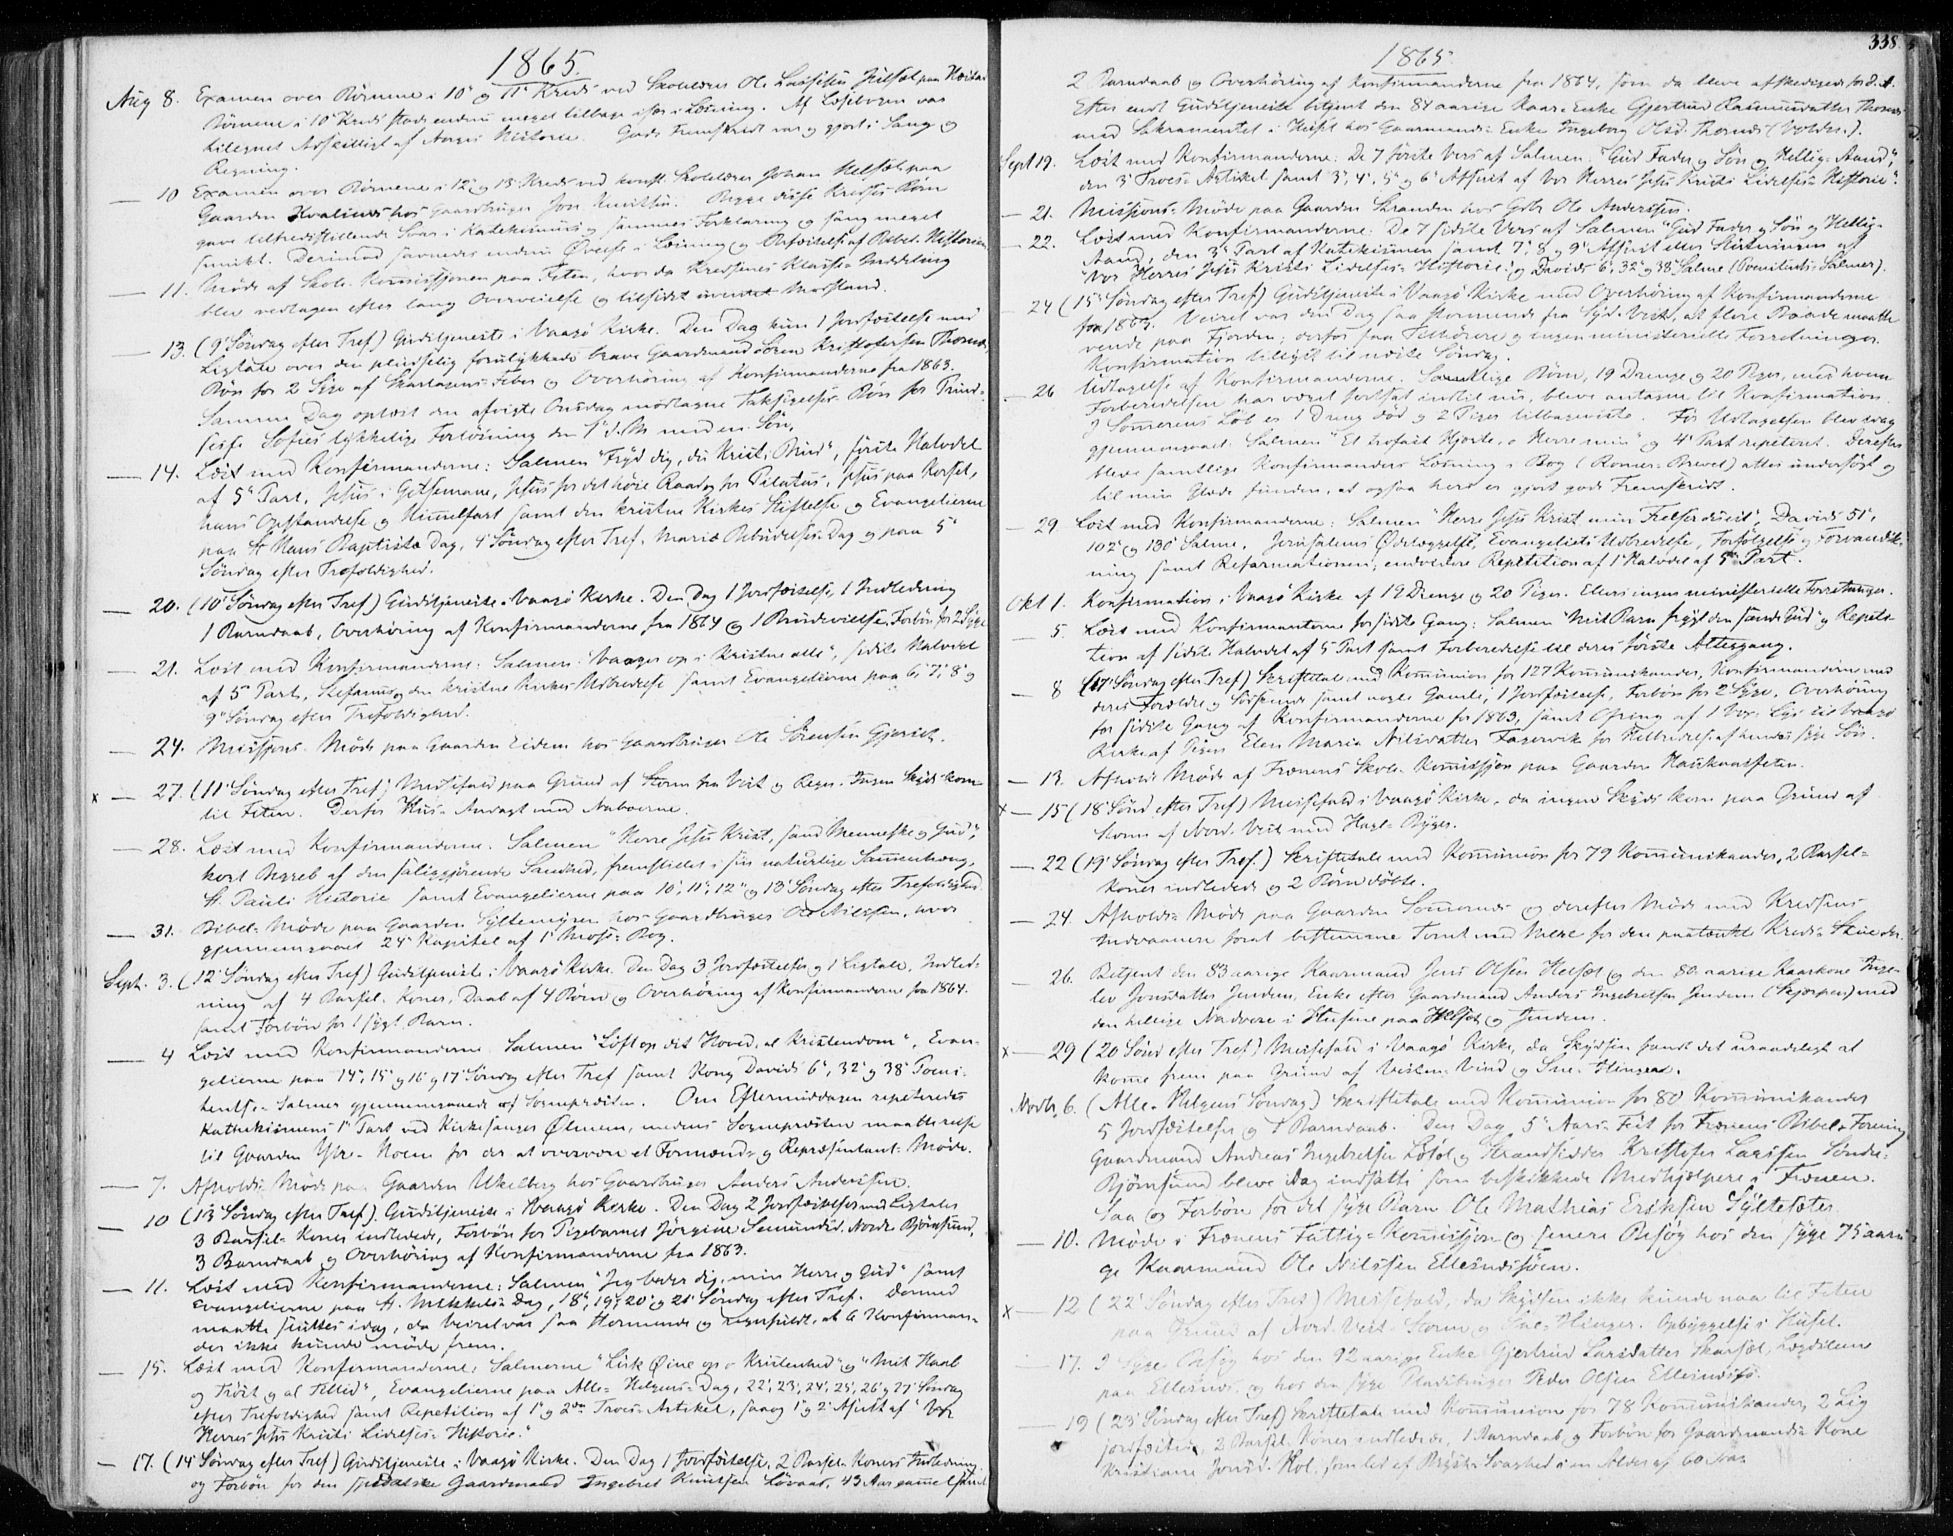 1865.
Aug 8. Examen over Börnene i 10 og 11 Kreds ved Skolelærer Ole Larssen Julset paa
Börnene i 10 Kreds stode endnu meget tilbage især i Læsning. Af Læsebogen var
tilegnet Adskilligt af Norges Historie. Gode Fremskridt var og gjort i Sang og
Regning.
— 10 Examen over Börnene i 12 og 13 Kreds ved konst. Skolelærer Johan Helset paa
Gaarden hos Gaardbruger Jon Knutsen. Begge disse Kredses Börn
gave tilfredsstillende Svar i Katekismus og sammes Forklaring og sang meget
smukt. Derimod savnedes endnu Övelse i Læsning og af Bibel-Historien
— 11. Möde af Skole-Kommissjonen paa Feten, hvor da Kredsenes Klasse-Inddeling
blev vedtagen efter lang Overveielse og tilsidst uventet Modstand.
— 13. (9 Söndag efter Tref) Gudstjeneste i Vaagö Kirke. Den Dag kun 1 Jordfæstelse med
Ligtale over den pludselig forulykkede brave Gaardmand Sören Kristofersen
Bön for 2 Syge af Skarlagens-Feber og Overhöring af Konfirmanderne fra 1863.
Samme Dag oplæst den afvigte Onsdag modtagne Taksigelses-Bön for Prind-
sesse Sofies lykkelige Forlösning den 1 d. M. med en Sön.
— 14. Læst med Konfirmanderne: Salmen "Fryd dig, du Kristi Brud", förste Halvdel
af 5 Part, Jesus i Getsemane, Jesus for det höie Raad og for Pilatus, Jesus paa Korset,
hans Opstandelse og Himmelfart samt den kristne Kirkes Stiftelse og Evangelierne
paa St Hans Baptiste Dag, 4 Söndag efter Tref. Mariæ Besögelses-Dag og paa 5
Söndag efter Trefoldighed.
— 20. (10 Söndag efter Tref) Gudstjeneste i Vaagö Kirke. Den Dag 1 Jordfæstelse, 1 Indledning
1 Barndaab, Overhöring af Konfirmanderne fra 1864 og 1 Brudevielse, Forbön for 2 Syge
— 21. Læst med Konfirmanderne: Salmen "Vaager op i Kristne alle", sidste Halvdel
af 5 Part, Stefanus og den kristne Kirkes Udbredelse samt Evangelierne paa 6, 7, 8 og
9 Söndag efter Trefoldighed.
— 24. Missjons-Möde paa Gaarden Eidem hos Gaardbruger Ole Sörensen Gjerset.
x — 27. (11 Söndag efter Tref) Messefald paa Grund af Storm fra Vest og Regn. Ingen Skyds kom
til Feten. Derfor Hus-Andagt med Naboerne.
— 28. Læst med Konfirmanderne. Salmen "Herre Jesu Krist, sand Menneske og Gud",
kort Begreb af den saliggjörende Sandhed, fremstillet i sin naturlige Sammenhæng,
St. Pauli Historie samt Evangelierne paa 10, 11, 12 og 13 Söndag efter Trefoldighed.
— 31. Bibel-Möde paa Gaarden Syltemyren hos Gaardbruger Ole Nilssen, hvor
gjennemgaaet 24 Kapitel af 1 Mose-Bog.
Sept. 3. (12 Söndag efter Tref) Gudstjeneste i Vaagö Kirke. Den Dag 3 Jordfæstelser og 1 Ligtale, Indled-
ning af 4 Barsel-Koner, Daab af 4 Börn og Overhöring af Konfirmanderne fra 1864.
samt Forbön for 1 sygt Barn.
— 4 Læst med Konfirmanderne Salmen "Löft op dit Hoved, al Kristendom", Evan-
gelierne paa 14, 15 og 16 og 17 Söndag efter Tref samt Kong Davids 6, 32 og 38 Poeni-
tentse-Salmer gjennemgaaede af Sognepræsten. Om Eftermiddagen repeteredes
Kathekismens 1 Part ved Kirkesanger Ölmem, medens Sognepræsten maatte reise
til Gaarden Ytre-Hoem for der at overvære et Formænds- og Repræsentant-Möde.
— 7. Afholdt Möde paa Gaarden Ukelberg hos Gaardbruger Anders Anderssen.
— 10 (13 Söndag efter Tref). Gudstjeneste i Vaagö Kirke. Den Dag 2 Jordfæstelser med Ligtaler
3 Barsel-Koner indledede, Forbön for Pigebarnet Jörgine Semundsd. Nordre Björnsund,
3 Barndaab og Overhöring af Konfirmanderne fra 1863.
— 11. Læst med Konfirmanderne: Salmen "Jeg beder dig, min Herre og Gud" samt
Evangelierne paa St. Mikkels Dag, 18, 19, 20 og 21 Söndag efter Tref. Dermed
maatte sluttes idag, da Veiret var saa stormende og regnfuldt, at 6 Konfirman-
der ikke kunde möde frem.
— 15. Læst med Konfirmanderne: Salmerne "Luk Öine op o Kristenhed" og "Mit Haab
og Tröst og al Tillid", Evangelierne paa Alle-Helgens-Dag, 22, 23, 24, 25, 26 og 27 Söndag
efter Trefoldighed samt Repetition af 1 og 2den Troes-Artikel, saaog 1 og 2 Afsnit af "Vor
Herres Jesu Kristi Lidelses-Historie."
— 17. (14 Söndag efter Tref) Gudstjeneste i Vaagö Kirke. Den Dag 1 Jordfæstelse, 2 Barsel-Koners Indledning
og Forbön for den spedalske Gaardmand Ingebret Knutsen Lövaas, 43 Aar gammel samt
338
1865.
2 Barndaab og Overhöring af Konfirmanderne fra 1864, som da bleve afskedigede for d. A.
Efter endt Gudstjeneste betjent den 84 aarige Kaar-Enke Gjertrud Rasmusdatter
med Sakramentet i Huset hos Gaardmands-Enke Ingeborg Olsd. Thornæs (Voldes.).
Sept 19. Læst med Konfirmanderne: De 7 förste Vers af Salmen "Gud Fader og Sön og Hellig-Aand",
den 3 Troes-Artikel samt 3, 4, 5 og 6 Afsnit af Vor Herres Jesu Kristi Lidelses-Historie."
— 21. Missjons-Möde paa Gaarden Stranden hos Gbr Ole Anderssen.
— 22. Læst med Konfirmanderne: De 7 sidste Vers af Salmen "Gud Fader og Sön og Hellig-
Aand, den 3 Part af Katekismen samt 7, 8 og 9 Afsnit eller Slutningen af
"Vor Herres Jesu Kristi Lidelses-Historie" og Davids 6, 32 og 38 Salme (Poenitents-Salmer).
— 24 (15 Söndag efter Tref) Gudstjeneste i Vaagö Kirke med Overhöring af Konfirmanderne
fra 1863. Veiret var den Dag saa stormende fra Syd-Vest, at flere Baade maatte
vende paa Fjorden; derfor faa Tilhörere og ingen ministerielle Forretninger.
Konfirmation tillyst til næste Söndag.
— 26 Udtagelse af Konfirmanderne. Samtlige Börn, 19 Drenge og 20 Piger, med hvem
Forberedelsen har været fortsat indtil nu, bleve antagne til Konfirmation.
I Sommerens Löb er 1 Dreng död og 2 Piger tilbageviste. För Udtagelsen blev idag
gjennemgaaet Salmen "Et trofast Hjerte, o Herre min" og 4 Part repeteret. Derefter
bleve samtlige Konfirmanders Læsning i Bog (Romer-Brevet) atter undersögt og
til min Glæde funden, at ogsaa heri er gjort gode Fremskridt.
— 29. Læst med Konfirmanderne: Salmen "Herre Jesu Krist min Frelser du est", Davids 51,
102 og 130 Salme, Jerusalems Ödelæggelse, Evangeliets Udbredelse, Forfölgelse og Forvansk-
ning samt Reformationen; endvidere Repetition af 1 Halvdel af 5 Part.
Okt 1. Konfirmation i Vaagö Kirke af 19 Drenge og 20 Piger. Ellers ingen ministerielle Forretninger.
— 5. Læst med Konfirmanterne for sidste Gang: Salmen "Mit Barn frygt den sande Gud" og Repeti-
tion af sidste Halvdel af 5 Part samt Forberedelse til deres förste Altergang.
— 8 (17 Söndag efter Tref) Skriftetale med Kommunion for 127 Kommunikander, Konfirmanderne med
deres Forældre og Södskende samt nogle Gamle, 1 Jordfæstelse, Forbön for 2 Syge, Overhöring
for sidste Gang af Konfirmanderne for 1863, samt Ofring af 1 Vox-Lys til Vaagö
Kirke af Pigen Elen Maria Nilsdatter Fagervik for Helbredelse af hendes syge Sön.
— 13. Afholdt Möde af Frænens Skole-Kommissjon paa Gaarden Haukaasfeten.
x — 15 (18 Sönd efter Tref) Messefald i Vaagö Kirke, da ingen Skyds kom paa Grund af
Storm af Nord-Vest med Hagl-Byger.
— 22 (19 Söndag efter Tref.) Skriftetale med Kommunion for 79 Kommunikander, 2 Barsel-
koner indledede og 2 Börn döbte.
— 24. Afholdt Möde paa Gaarden Sommernes og derefter Möde med Kredsens
Indvaanere forat bestemme Tomt med mere for den paatænkte Kreds-Skole der.
— 26. Betjent den 83 aarige Kaarmand Jens Olsen Helset og den 80 aarige Kaarkone Inge-
lev Jonsdatter Jendem, Enke efter Gaardmand Anders Ingebretsen Jendem (Skjorpen) med
den hellige Nadvere i Husene paa Helset og Jendem.
x — 29 (20 Sönd efter Tref) Messefald i Vaagö Kirke, da Skydsen fandt det uraadeligt at
komme frem paa Grund af Vesten-Vind og Sne-Hlinger.
Novbr. 6. (Alle-Helgens Söndag) Skriftetale med Kommunion for 80 Kommunikander
5 Jordfæstelser og 1 Barndaab. Den Dag 5 Aars-Fest for Frænens Bibel-Forening
Gaardmand Andreas Ingebretsen og Strandsidder Kristofer Larssen Söndre-
Björnsund bleve idag indsatte som beskikkede Medhjælpere i Frænen.
Saa og Forbön for det syge Barn Ole Mathias Eriksen Syltesæter.
— 10. Möde i Frænens Fattig-Kommissjon og senere Besög hos den syge 75 aari-
ge Kaarmand Ole Nilssen Ellesnæsöen.
x — 12 (22 Söndag efter Tref) Messefald, da Skydsen ikke kunde naa til Feten
paa Grund af Nord-Vest-Storm og Sne-Hlinger. Opbyggelse i Huset.
— 17. I Syge Besög hos den 92 aarige Enke Gjertrud Larsdatter Skarset, Lægdslem
paa Ellesnes, og hos den syge Pladsbruger Peder Olsen
— 19 (23 Söndag efter Tref) Skriftetale med Kommunion for 78 Kommunikander, 2 Lig
jordfæstede, 2 Barsel-Koner indledede, 1 Barndaab og Forbön for Gaardmands Kone
Kristiane Jonsd. Hol, som led af Bryst-Svaghed i en Alder af 60 Aar.